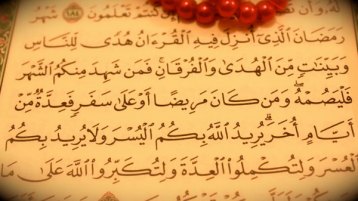 كُنتُمْ تَعْلَمُونَ ١٨٤ شَهْرُ
رَمَضَانَ ٱلَّذِىٓ أُنزِلَ فِيهِ ٱلْقُرْءَانُ هُدًى لِّلنَّاسِ
وَبَيِّنَٰتٍ مِّنَ ٱلْهُدَىٰ وَٱلْفُرْقَانِ ۚ فَمَن شَهِدَ مِنكُمُ ٱلشَّهْرَ
فَلْيَصُمْهُ ۖ وَمَن كَانَ مَرِيضًا أَوْ عَلَىٰ سَفَرٍ فَعِدَّةٌ مِّنْ
أَيَّامٍ أُخَرَ ۗ يُرِيدُ ٱللَّهُ بِكُمُ ٱلْيُسْرَ وَلَا يُرِيدُ بِكُمُ
ٱلْعُسْرَ وَلِتُكْمِلُوا۟ ٱلْعِدَّةَ وَلِتُكَبِّرُوا۟ ٱللَّهَ عَلَىٰ مَا